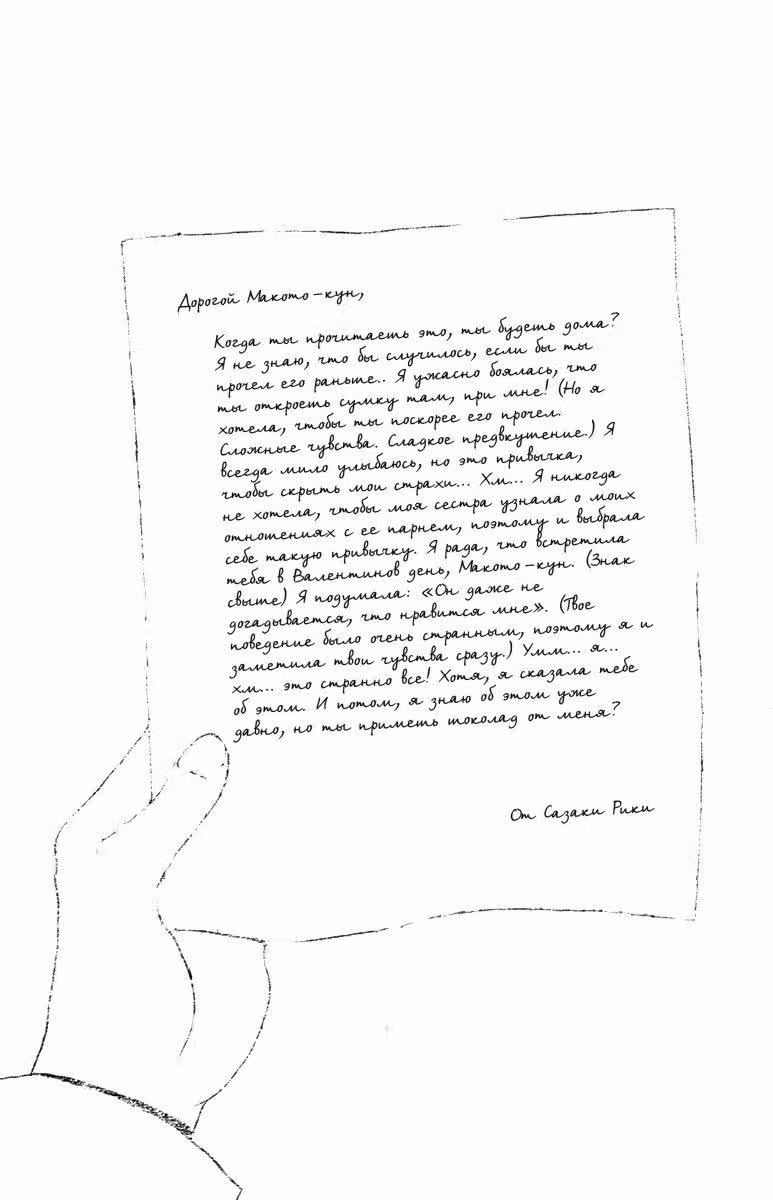 Дорогой Макото-кун,
Когда ты прочитаешь это, ты будешь дома?
Я не знаю, что бы случилось, если бы ты
прочел его раньше.. Я ужасно боялась, что
ты откроешь сумку там, при мне! (Но я
хотела, чтобы ты поскорее его прочел.
Сложные чувства. Сладкое предвкушение.) Я
всегда мило улыбаюсь, но это привычка,
чтобы скрыть мои страхи... Хм... Я никогда
не хотела, чтобы моя сестра узнала о моих
отношениях с ее парнем, поэтому и выбрала
себе такую привычку. Я рада, что встретила
тебя в Валентинов день, Макото-кун. (Знак
свыше) Я подумала: «Он даже не
догадывается, что нравится мне». (Твое
поведение было очень странным, поэтому я и
заметила твои чувства сразу.) Умм... я...
хм... это странно все! Хотя, я сказала тебе
об этом. И потом, я знаю об этом уже
давно, но ты примешь шоколад от меня?
От Сазаки Рики